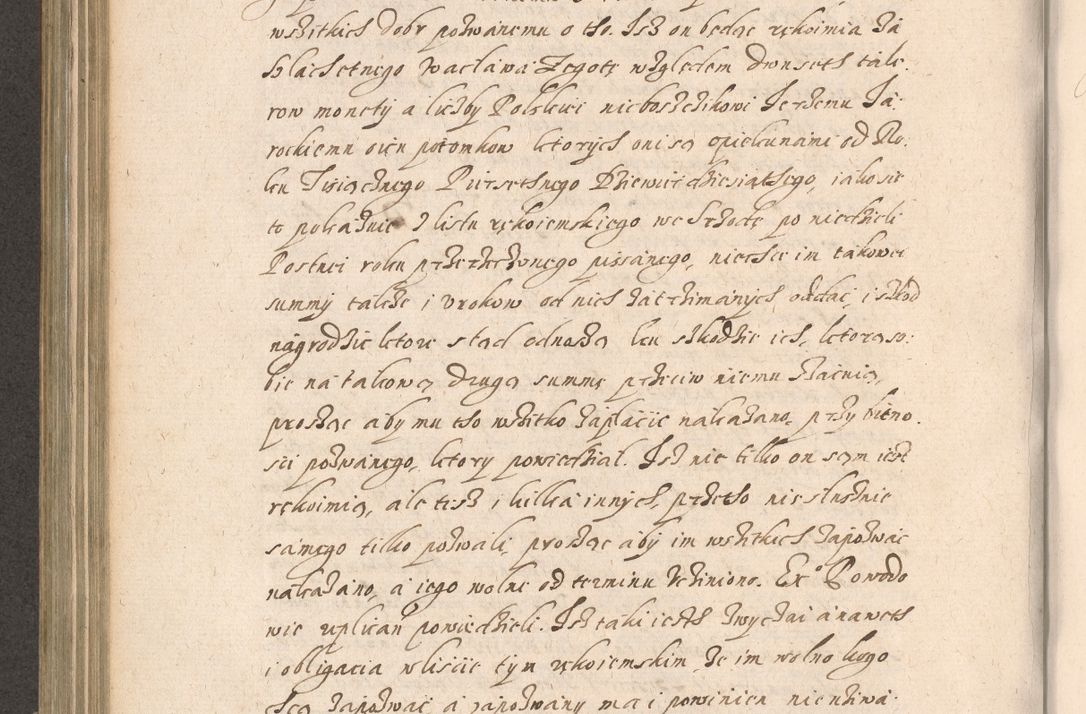 wszitkich dobr pozwanemu o tho. Isz on będąc rękoimia za
szlachetnego Wacława Zegotę względem dwuseth tale-
row monety a liczby Polskiei nieboszczikowi Jerzemu Ja-
rockiemu oicu potomkow ktorych oni są opiekunami od Ro-
ku Tisiącznego Pirzsethnego Dziewiędziesiąthego, iako sie
to pokaznie z listu rękoiemskiego we Srzodę po niedzieli
Postnei roku przerzeczonego pisanego, niechce im takowei
summy także i vrokow od nich zatrzimanych oddać, i szkod
nagrodzić ktore stąd odnoszą ku szkodzie ich, ktorą so-
bie na takową drugą summę przeciw niemu szacuią,
prosząc aby mu tho wszitko zapłacic nakazano, przy bitno-
sci pozwanego, ktory powiedział. Isz nie tilko on sam iest
rękoimią, ale tesz i kilka innych, przetho niesłusznie
samego tilko pozwali, prosząc aby im wszitkich zapozwać
nakazano, a iego wolne od terminu uczyniono. Ex Powodo
wie replicań powiedzieli. Isz taki iesth zwyczai a naweth
i obligacia w liście tym rękoiemskim, że im wolno kogo
chcą zapozwać a zapozwany ma i powinien nie uziwa-